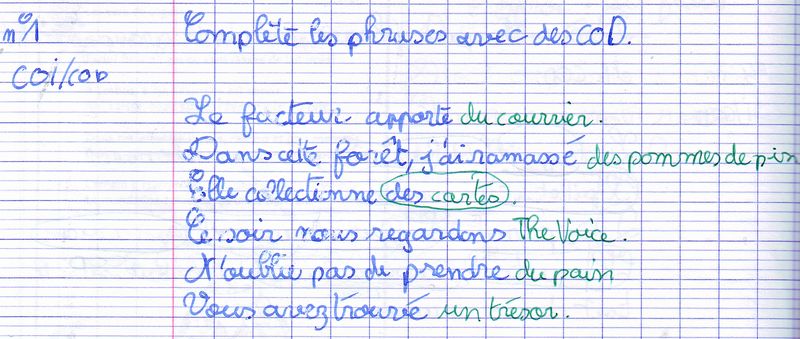 n°1 Complète les phrases avec des COD.
COI/COD
Le facteur apporte du courrier.
Dans cette forêt, j'ai ramassé des pommes de pin
Elle collectionne des cartes.
Ce soir nous regardons The Voice.
N'oublie pas de prendre du pain
Vous avez trouvé un trésor.